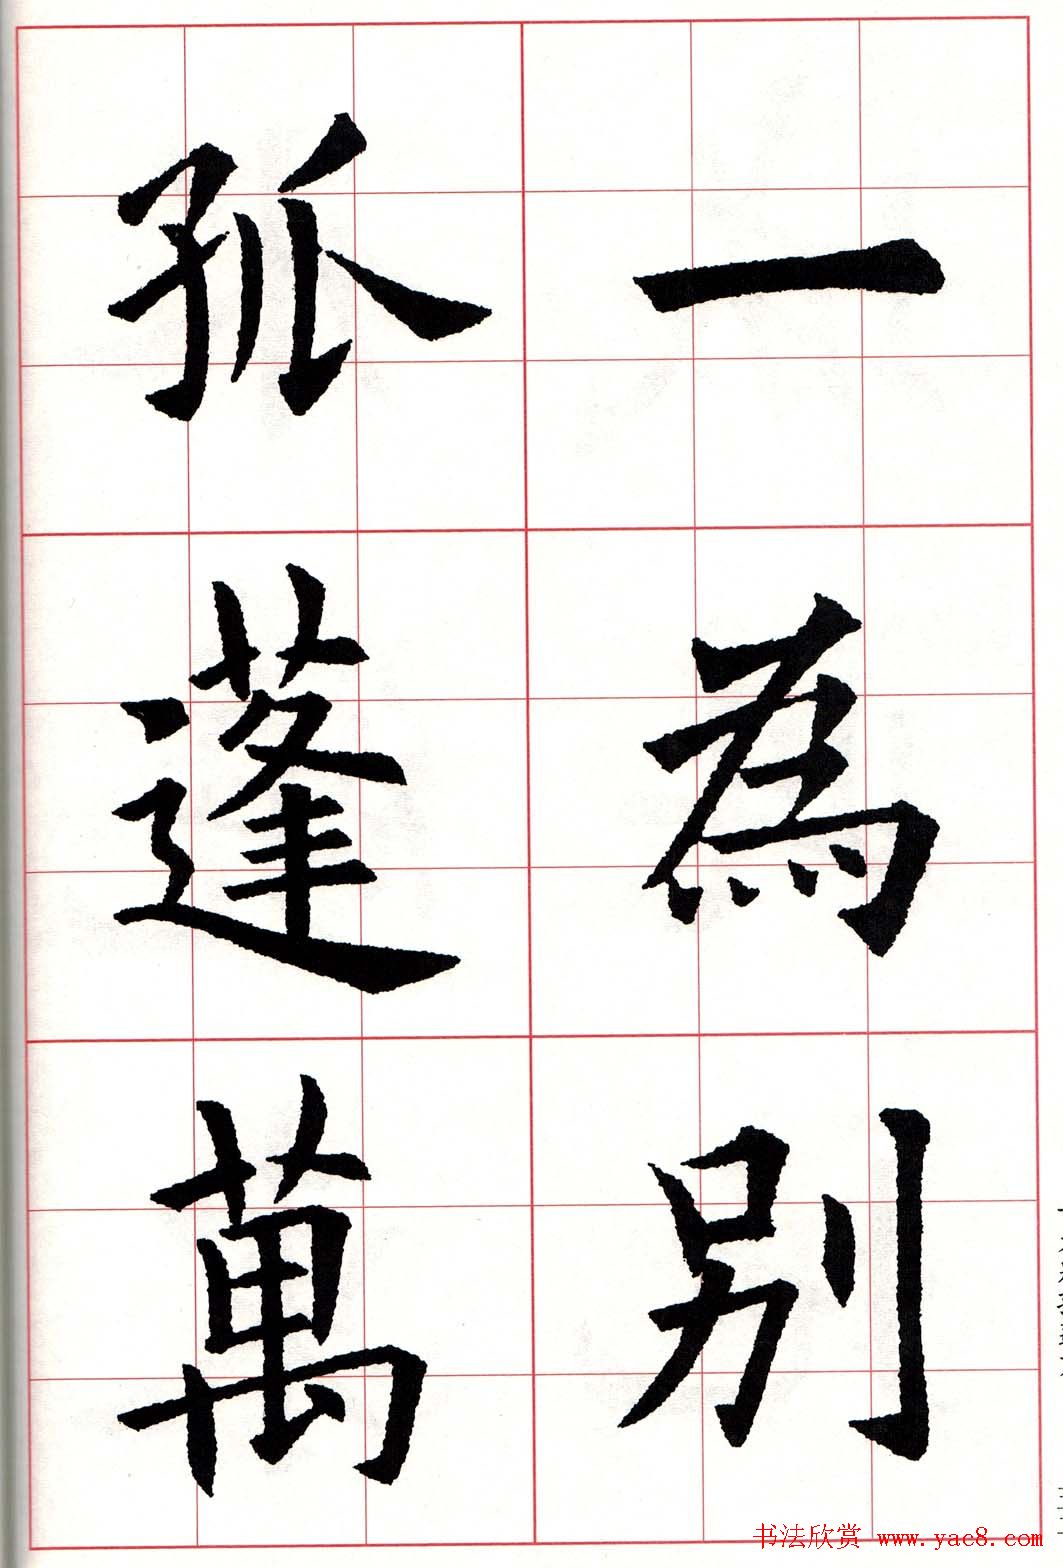 一為別
孤蓬萬
书法欣赏 www.yac8.com